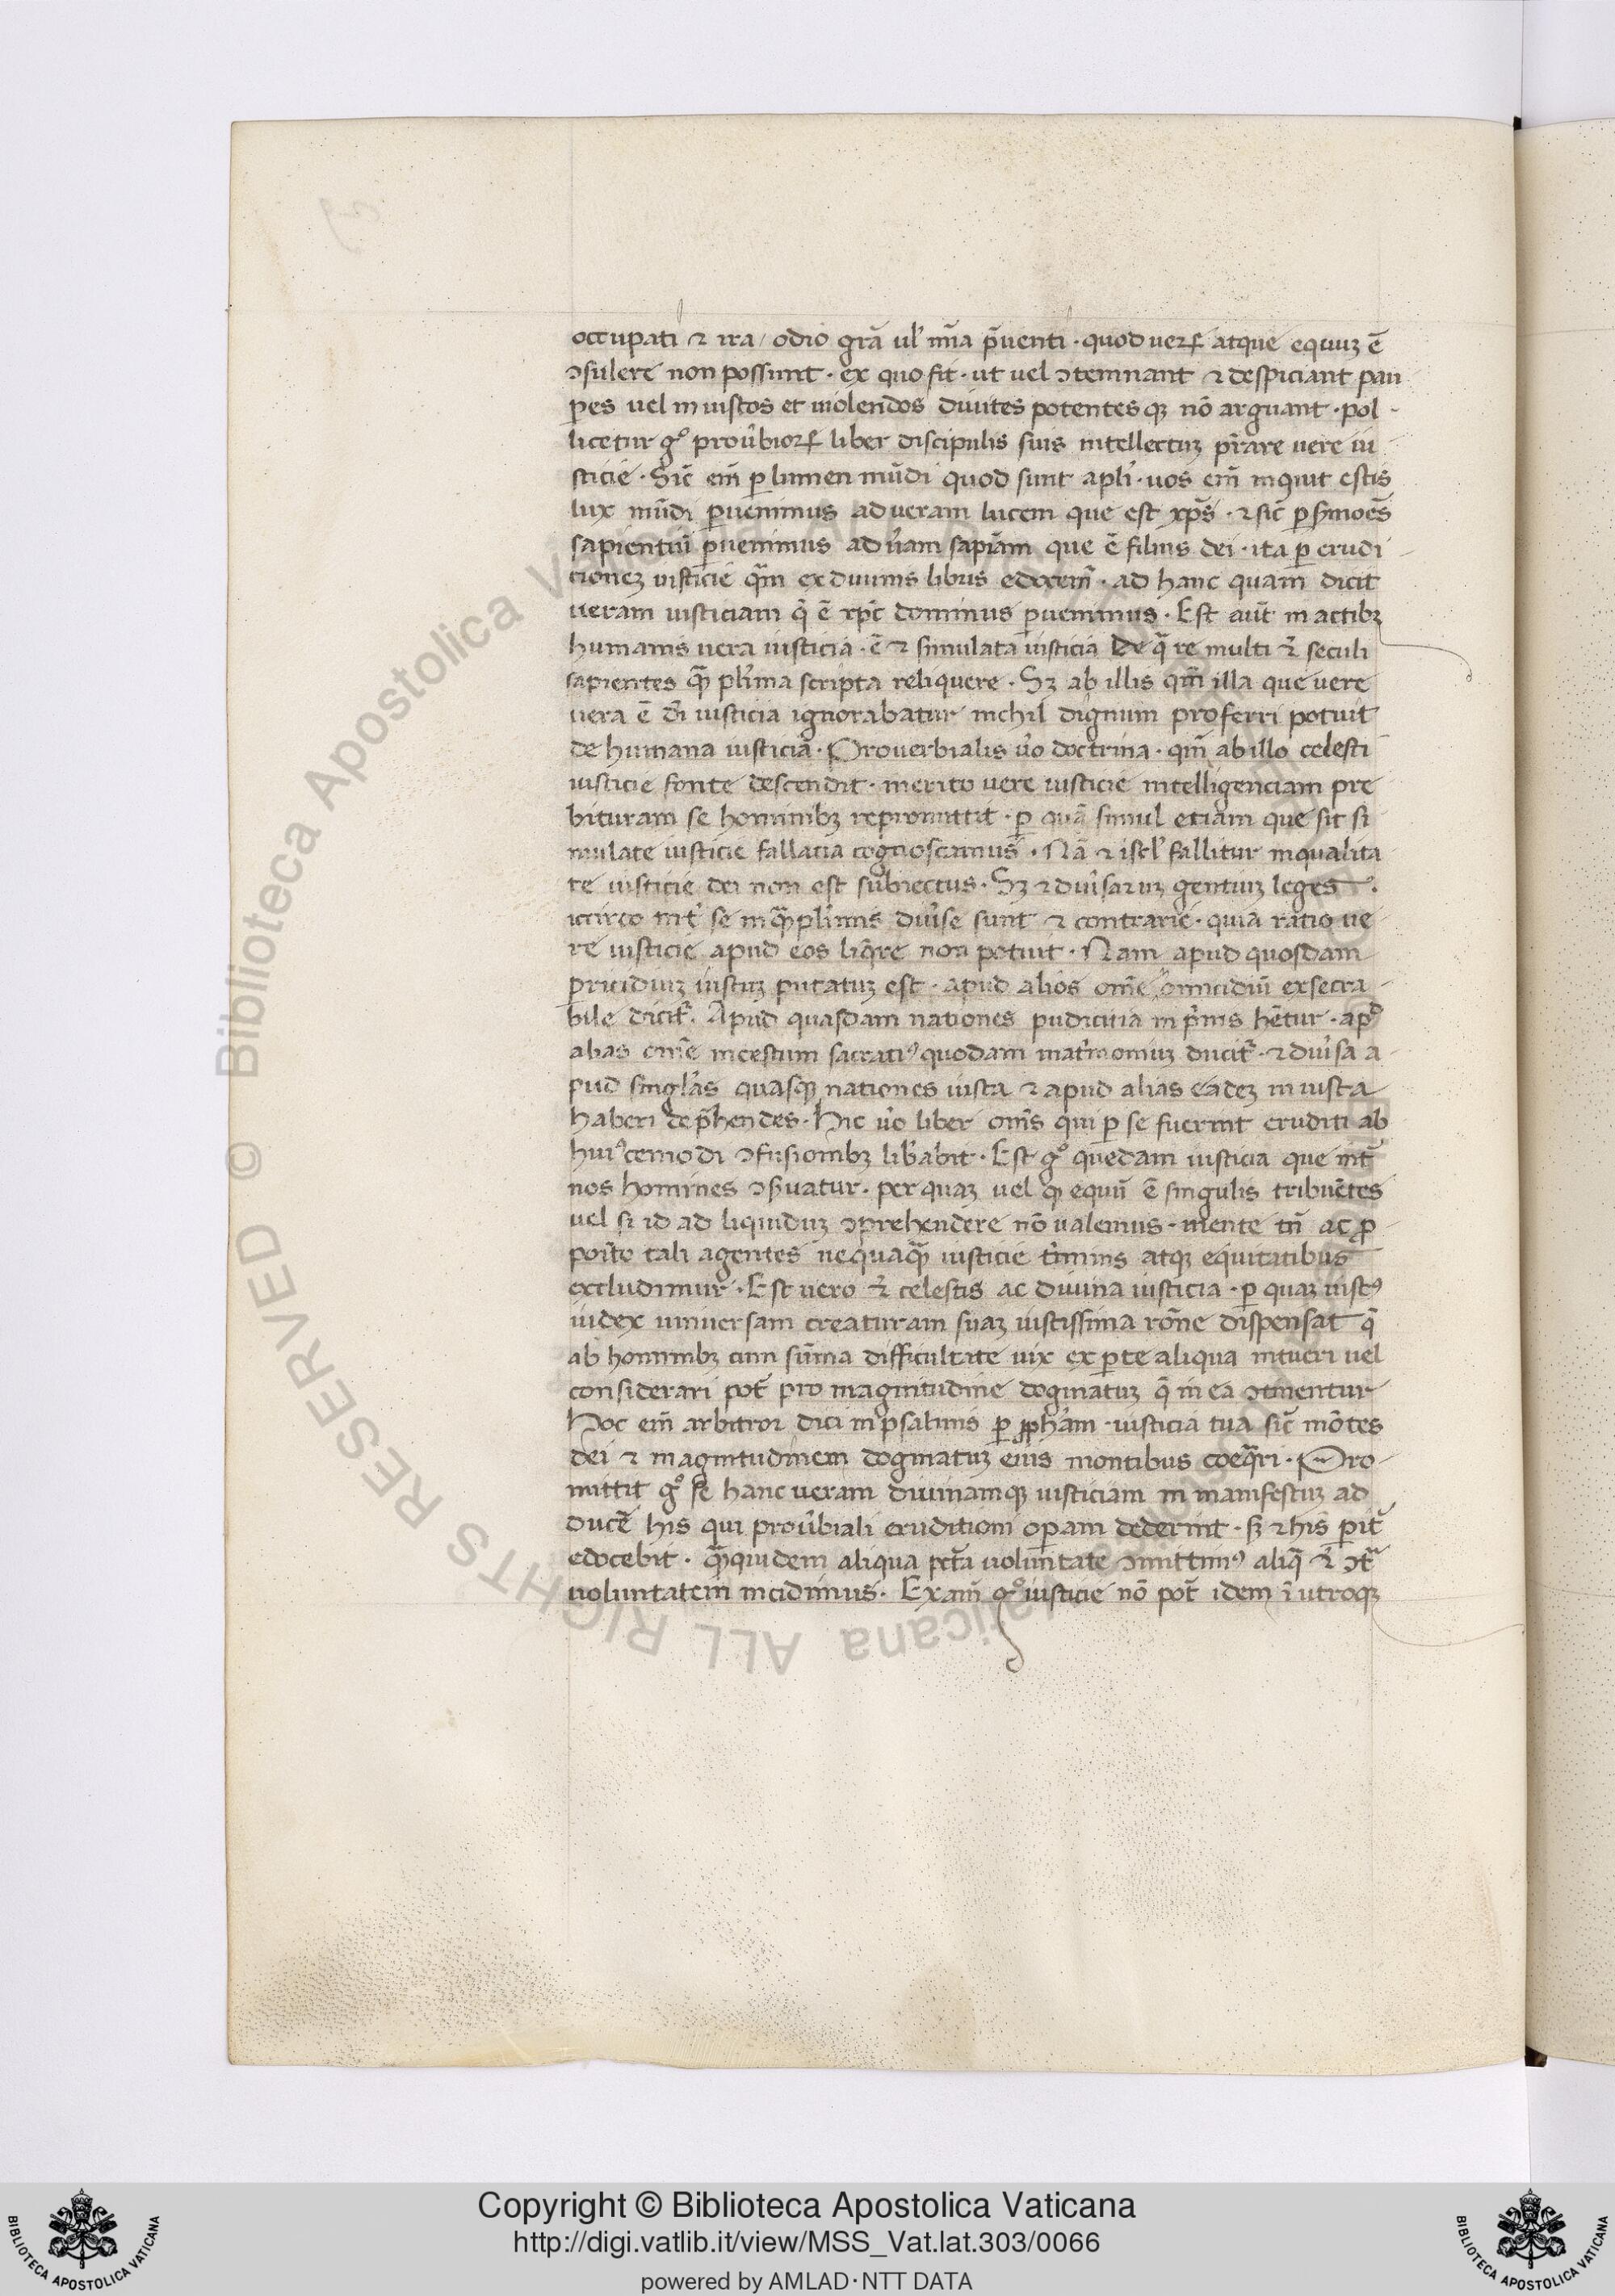 occupati ⁊ ira / odio grã ul' mĩa p̃uenti · quod ueꝝ atque equuz ẽ
ↄsulere non possunt · ex quo fit · ut uel ↄtemnant ⁊ despiciant pau
peres uel iniustos et uiolendos diuites potentesqꝫ nõ arguant · pol
licetur gº prou̾bioꝝ liber discipulis suis intellectuz p̃rare uere iu
sticie · Sic̃ em̃ ꝑ lumen mũdi quod sunt apl'i · uos em̃ inquit estis
lux mũdi ꝑuenimus ad ueram lucem que est xp̃s · ⁊ sic̃ ꝑ sermoẽs
sapientuũ ꝑuenimus ad u̾am sapiãm que ẽ filius dei · ita ꝑ erudi
cionez iusticie quãm ex diuinis libris edocem̃ · ad hanc quam dicit
ueram iusticiam q̃ ẽ xp̃c dominus ꝑuenimus · Est aut̃ in actibꝫ
humanis uera iusticia · ẽ ⁊ simulata iusticia De q̃ re multi ⁊ seculi
sapientes quãꝫ pl'ima scripta reliquere · Sꝫ ab illis qm̃ illa que uere
uera ẽ dĩ iusticia ignorabatur nichil dignum proferri potuit
de humana iusticia · Prouerbialis u̾o doctrina · qm̃ ab illo celesti
iusticie fonte descendit · merito uere iusticie intelligenciam pre
bituram se hominibꝫ repromittit · ꝑ quã simul etiam que sit si
mulate iusticie fallacia cognoscamus · Nã ⁊ isrl' fallitur in qualita
te iusticie dei non est subiectus · Sꝫ ⁊ diu̾saruz gentiuz leges ·
iccirco int̾ se in quãpl'imis diu̾se sunt ⁊ contrarie · quia ratio ue
re iusticie apud eos liq̃re non potuit · Nam apud quosdam
ꝑricidiuz iustuz putatuz est · apud alios om̃e omicidiũ exsecra
bile dicit̾ · Apud quasdam nationes pudicitia in p̃mis hẽtur · apᵈ
alias om̃e incestum sacratiꝰ quodam mat̾moniuz ducit̾ · ⁊ diu̾sa a
pud singl'as quasqꝫ nationes iusta ⁊ apud alias eadez iniusta
haberi dep̃hendes · Hic u̾o liber om̃s qui ꝑ se fuerint eruditi ab
huiꝰcemodi ↄfusionibꝫ lib̾abit · Est gº quedam iusticia que int̾
nos homines ↄs̾uatur · per quaz uel qꝫ equũ ẽ singulis tribuẽtes
uel si id ad liquiduz ↄprehendere nõ ualemus · mente tñ ac ꝓ
poĩto tali agentes nequaquãꝫ iusticie t̾minis atqꝫ equitatibus
excludimur · Est uero ⁊ celestis ac diuina iusticia · ꝑ quaz iustꝰ
iudex uniuersam creaturam suaz iustissima rõne dispensat q̃
ab hominibꝫ cum sũma difficultate uix ex ꝑte aliqua intueri uel
considerari pot̃ pro magnitudine dogmatuz q̃ in ea ↄtinentur
Hoc em̃ arbitror dici in psalmis ꝑ ꝓph̃am · iusticia tua sic̃ mõtes
dei ⁊ magnitudinem dogmatuz eius montibus coequãri · Pro
mittit gº se hanc ueram diuinamqꝫ iusticiam in manifestuz ad
ducẽ his qui prou̾biali eruditioni operam dederint · sꝫ ⁊ his ꝑit̾
edocebit · quãꝫquidem aliqua pctã uoluntate ↄmittimꝰ aliq̃ ⁊ ↄt̃
uoluntatem incidimus · Exam̃ gº iusticie nõ pot̃ idem ĩ utroqꝫ
Copyright © Biblioteca Apostolica Vaticana
http://digi.vatlib.it/view/MSS_Vat.lat.303/0066
powered by AMLAD·NTT DATA
BIBLIOTECA APOSTOLICA VATICANA
BIBLIOTECA APOSTOLICA VATICANA
© Biblioteca Apostolica Vaticana ALL RIGHTS RESERVED